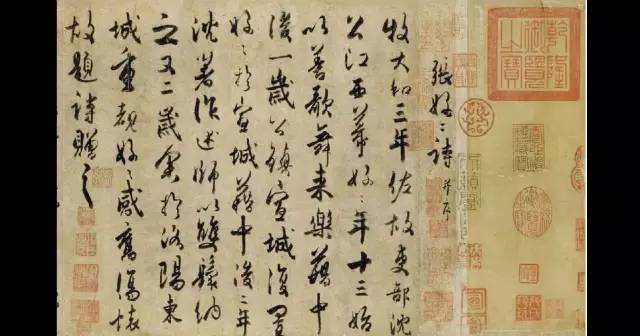 乾隆御覽之寶
張好〻詩 并序
牧大和三年佐故吏部沈
公江西幕好〻年十三始
以善歌舞来樂籍中
後一歲公鎮宣城復置
好〻於宣城籍中後二年
沈著作述師以雙鬟納
之又二歲余於洛陽東
城重覩好〻感舊傷懷
故題詩贈之